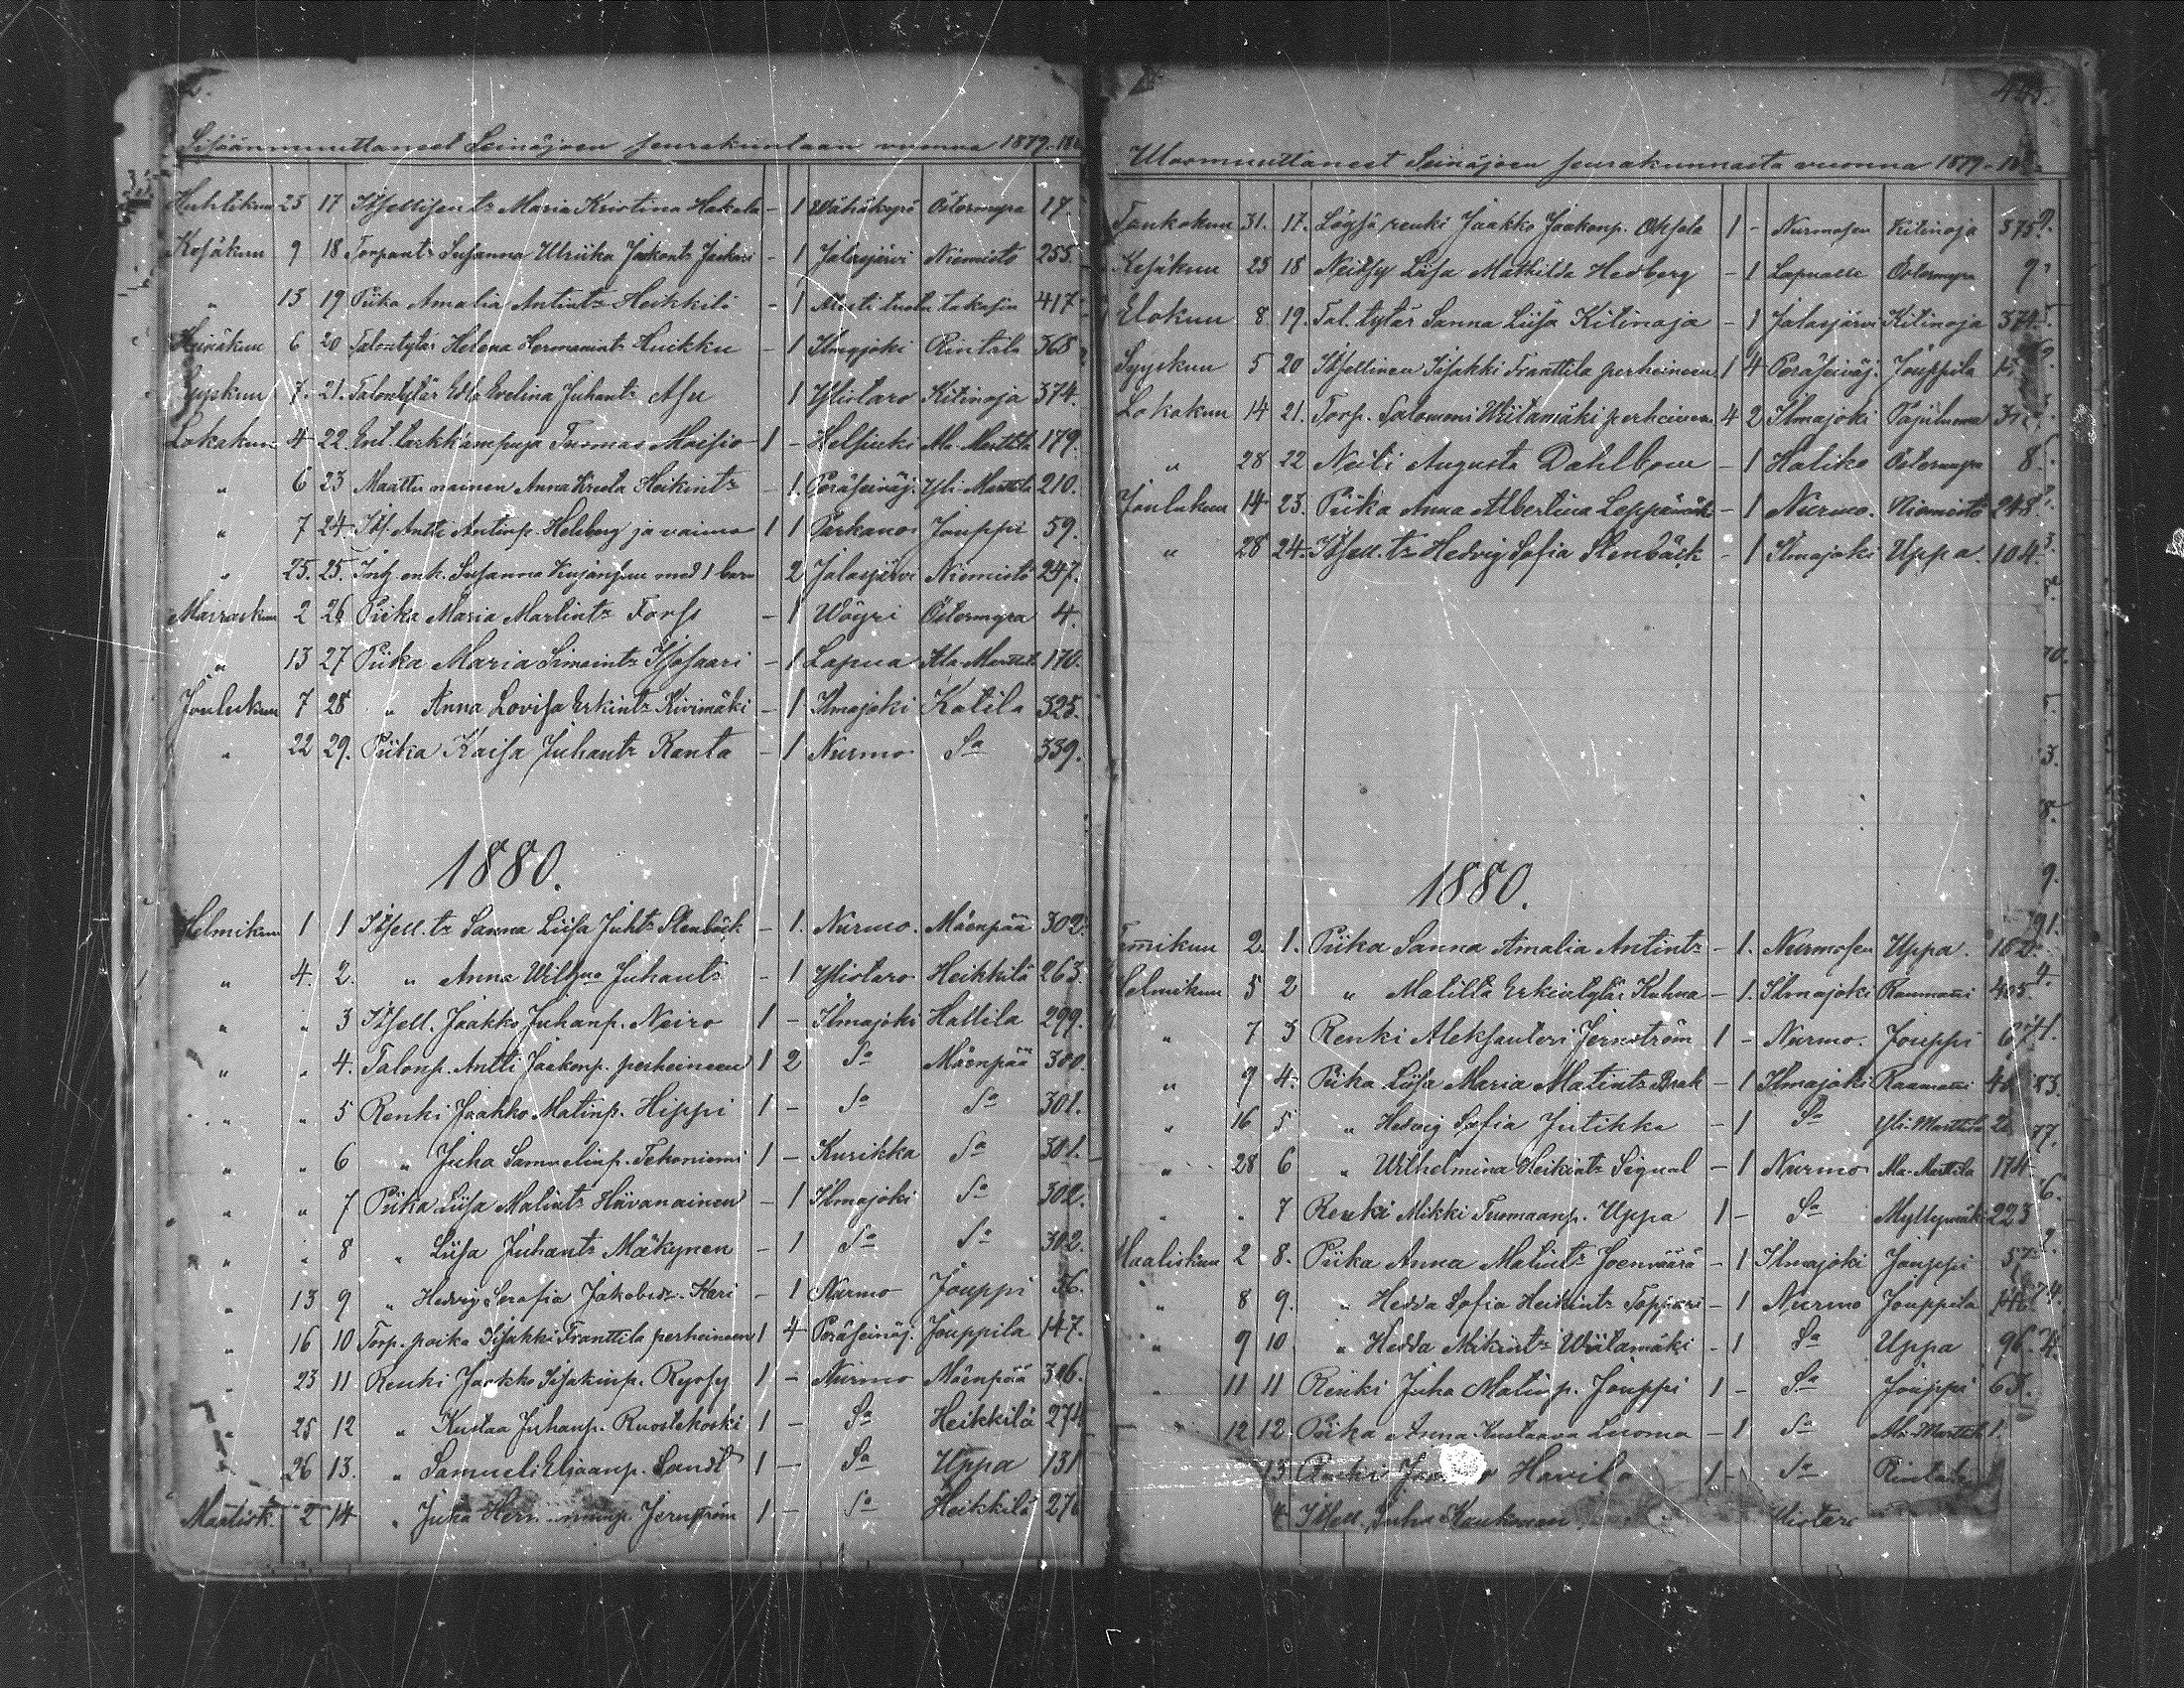 Sisäänmuuttaneet Seinäjoen seurakuntaan vuonna 1879-
Huhtikuu 23 17 Itsellisentr Maria Kristina Hakala - 1 Wähäkyrö Östermyra 17.
Kesäkuu 9 18 Torpantr Susanna Ulriika Jaakontr - 1 Jalasjärvi Niemistö 255.
" 13 19 Piika Amalia Antintr Heikkilä - 1 417
Heinäkuu 6 20 Talontytär Helena Hermannintr Huikku - 1 Ilmajoki Rintala 368
Syyskuu 7. 21. Talontytär Edla Evelina Juhantr Asu 1 Ylistaro Kitinoja 374.
Lokakuu 4 22. Ent. tarkk'ampuja Tuomas Moisio 1 - Helsinki Ala-Marttila 179.
" 6 23 Mies nainen Anna Kreeta Heikintr - 1. Peräseinäj. Yli-Marttila 210.
" 7 24. Its. Antti Antinp. Helsberg ja vaimo 1 1 Parkano Jouppi 59.
" 25. 25. Inh. enk. Susanna Kujanpuu med 1 barn 2 Jalasjärvi Niemistö 247.
Marraskuu 2 26 Piika Maria Martintr Forss - 1 Wöyri Östermyra 4.
" 13 27 Piika Maria Simointr Isosaari - 1 Lapua Ala-Marttila 170.
Joulukuu 7 28 " Anna Lovisa Erkintr Kivimäki - 1 Ilmajoki Katila 325.
" 22 29. Piika Kaisa Juhantr Ranta - 1 Nurmo Sa 339.
1880.
Helmikuu 1 1 Itsell. tr Sanna Liisa Juhtr Stenbäck - 1. Nurmo. Mäenpää 302.
" 4. 2. " Anna Wilhna Juhantr - 1 Ylistaro Heikkilä 263.
" " 3 Itsell. Jaakko Juhanp. Neiro 1 - Ilmajoki Hallila 299.
" " 4. Talonp. Antti Jaakonp. perheineen 1 2 Sa Mäenpää 300.
" " 5 Renki Jaakko Matinp. Hippi 1 - Sa Sa 301.
" " 6 " Juha Samuelinp. Tekoniemi 1 - Kurikka Sa 301.
" " 7 Piika Liisa Matintr Hävanainen - 1 Ilmajoki Sa 302.
" " 8 " Liisa Juhantr Mäkynen - 1 Sa Sa 302.
" 13 9 " Hedvig Serafia Jakobsdr. Kari - 1 Nurmo Jouppi 56.
" 16 10 Torp. poika Iisakki Franttila perheineen 1 4 Peräseinäj. Jouppila 147.
" 23 11 Renki Jaakko Iisakinp. Ryssy 1 - Nurmo Mäenpää 306.
" 25 12 " Kustaa Juhanp. Ruostekoski 1 - Sa Heikkilä 274
" 26 13. " Samueli Eljaanp. Sandt 1 - Sa Uppa 131
Maalisk. 2 14 " Juha Jernström 1 - Sa Heikkilä 276
445.
Ulosmuuttaneet Seinäjoen seurakunnasta vuonna 1879-
Toukokuu 31. 17. Löysä renki Jaakko Jaakonp. Oksala 1 - Nurmosen Kitinoja 375
Kesäkuu 23 18 Neitsy Liisa Mathilda Hedberg - 1 Lapualle Östermyra 9
Elokuu 8 19. Tal. tytär Sanna Liisa Kitinoja - 1 Jalasjärvi Kitinoja 374.
Syyskuu 5 20 Itsellinen Iisakki Franttila perheineen 1 4 Peräseinäj. Jouppila
Lokakuu 14 21. Torp. Salomoni Wiitamäki perheineen 4 2 Ilmajoki Pajuluoma
" 28 22 Neiti Augusta Dahlbom - 1 Haliko Östermyra 8
Joulukuu 14 23. Piika Anna Albertina Leppämäki - 1 Nurmo. Niemistö 248
" 28 24. Itsell. tr Hedvig Sofia Stenbäck - 1 Ilmajoki Uppa. 104.
1880.
Tammikuu 2. 1. Piika Sanna Amalia Antintr - 1. Nurmosen Uppa.
Helmikuu 5 2 " Matilta Erkintytär Kuhna - 1. Ilmajoki Raumanni 405.
" 7 3 Renki Aleksanteri Jernström 1 - Nurmo. Jouppi
" 9 4. Piika Liisa Maria Matintr - 1 Ilmajoki Raumanni
" 16 5 " Hedvig Sofia Jutikka - 1 Sa Yli-Marttila
" 28 6 " Wilhelmina Heikintr Signal - 1 Nurmo Ala-Marttila 174
" " 7 Renki Mikki Tuomaanp. Uppa 1 - Sa Myllymäki 223
Maaliskuu 2 8. Piika Anna Matintr Joenväärä - 1 Ilmajoki Jouppi 57
" 8 9. " Hedda Sofia Heikintr Toppari - 1 Nurmo Jouppila
" 9 10 " Hedda Mikintr Wiitamäki - 1 Sa Uppa 96
" 11 11 Renki Juha Matinp. Jouppi 1 - Sa Jouppi 65.
12 12 Piika Anna Kustaava Luoma - 1 Sa Ala-Marttila
13 Renki Havila 1 - Sa Rintala
Itsell. Juha Kaukonen